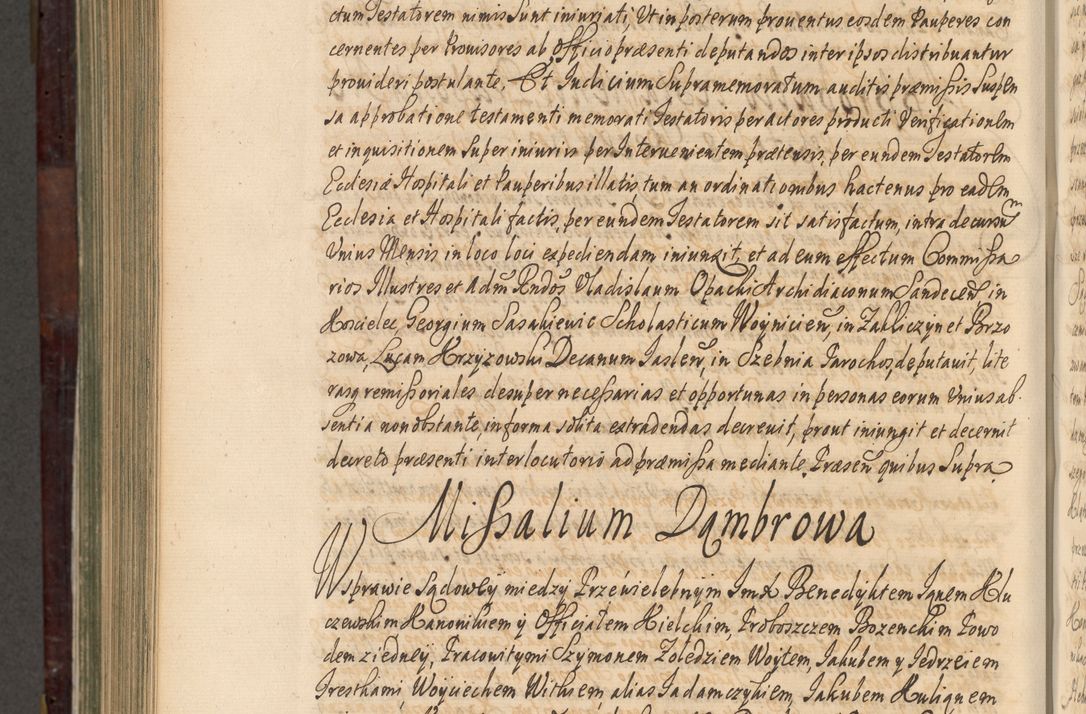 ctum Testatorem nimis sunt iniuriati, Ut in posterum prouentus eosdem Pauperes con
cernentes per Prouisores ab Officio præsenti deputandos inter ipsos distribuantur
prouideri postulante. Et Iudicium Supramemoratum auditis præmissis Suspen
sa approbatione testamenti memorati Testatoris per actores producti Verificationem
et inquisitionem Super iniuriis per Interuenientem prætensis, per eundem Testatorem
Ecclesiæ Hospitali et Pauperibus illatis, tum an ordinationibus hactenus pro eadem
Ecclesia et Hospitali factis, per eundem Testatorem sit satisfactum, intra decursum
Vnius Mensis in loco loci expediendam iniunxit, et ad eum effectum Commissa
rios Illustres et Adm Rndos Vladislaum Opacki Archidiaconum Sandecen, in
Koscielec, Georgium Sasakiewic Scholasticum Woynicien, in Zakliczyn et Brzo
zowa, Lucam Krzyzowski Decanum Jaslen, in Szebnia Parochos, deputauit, lite
rasq remissoriales desuper necessarias et opportunas in personas eorum Vnius ab
sentia non obstante, in forma solita extradendas decreuit, prout iniungit et decernit
decreto præsenti interlocutorio ad præmissa mediante. Præsen quibus Supra
Missalium Dąmbrowa
W sprawie Sądowey miedzy Przewielebnym Imx Benedyktem Janem Klu
czewskim Kanonikiem y Officiałem Kielckim, Proboszczem Bozenckim Powo
dem z iedney, Pracowitymi Szymonem Zołedziem Woytem, Jakubem y Jedrzeiem
Treskami, Woyciechem Witkiem, alias Jadamczykiem, Jakubem Kulignem